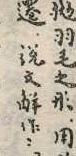 弛羽毛之形用
遷說文解作